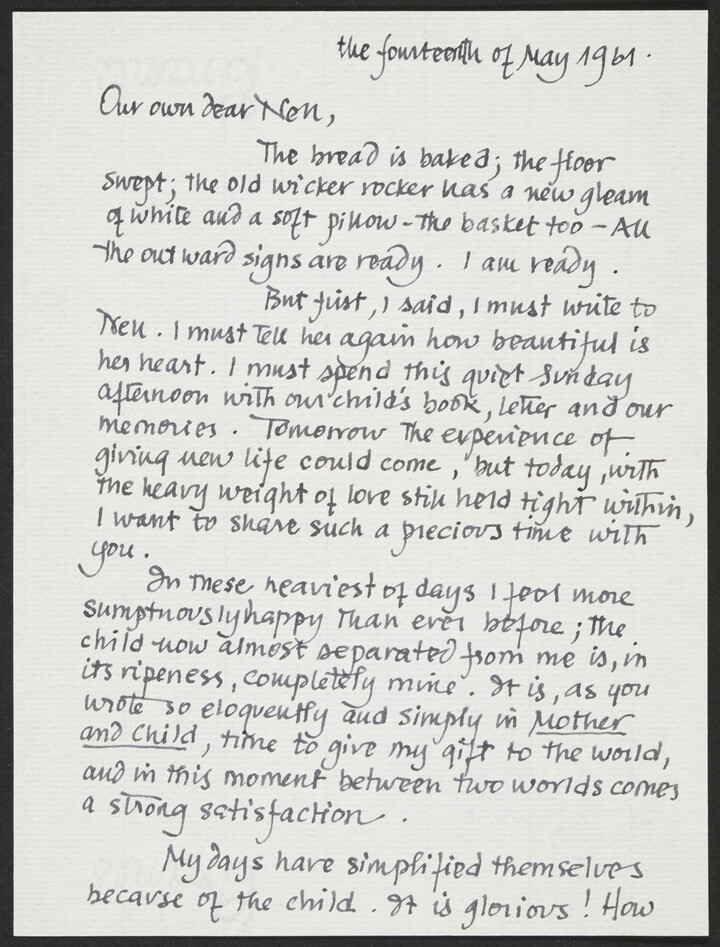 the fourteenth of May 1961.
Our own dear Nell,
The bread is baked; the floor
swept; the old wicker rocker has a new gleam
of white and a soft pillow - the basket too - All
the outward signs are ready. I am ready.
But first, I said, I must write to
Nell. I must tell her again how beautiful is
her heart. I must spend this quiet Sunday
afternoon with our child's book, letter and our
memories. Tomorrow the experience of
giving new life could come, but today, with
the heavy weight of love still held tight within,
I want to share such a precious time with
you.
In these heaviest of days I feel more
sumptuously happy than ever before; the
child now almost separated from me is, in
its ripeness, completely mine. It is, as you
wrote so eloquently and simply in Mother
and Child, time to give my gift to the world,
and in this moment between two worlds comes
a strong satisfaction.
My days have simplified themselves
because of the child. It is glorious! How